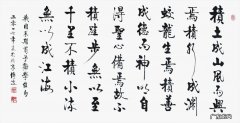 積土成山風雨
興焉積水成淵
蛟龍生焉積善
成德而神明自
得聖心備焉故不
積跬步無以至
千里不積小流
無以成江海